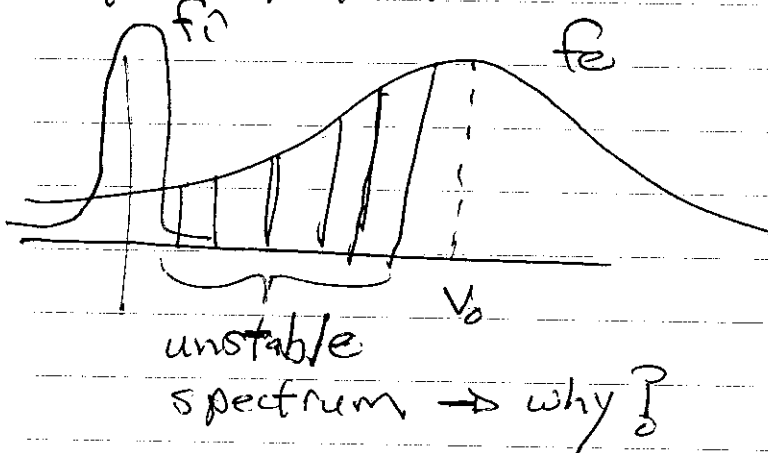 fi
fe
V₀
unstable
spectrum → why?